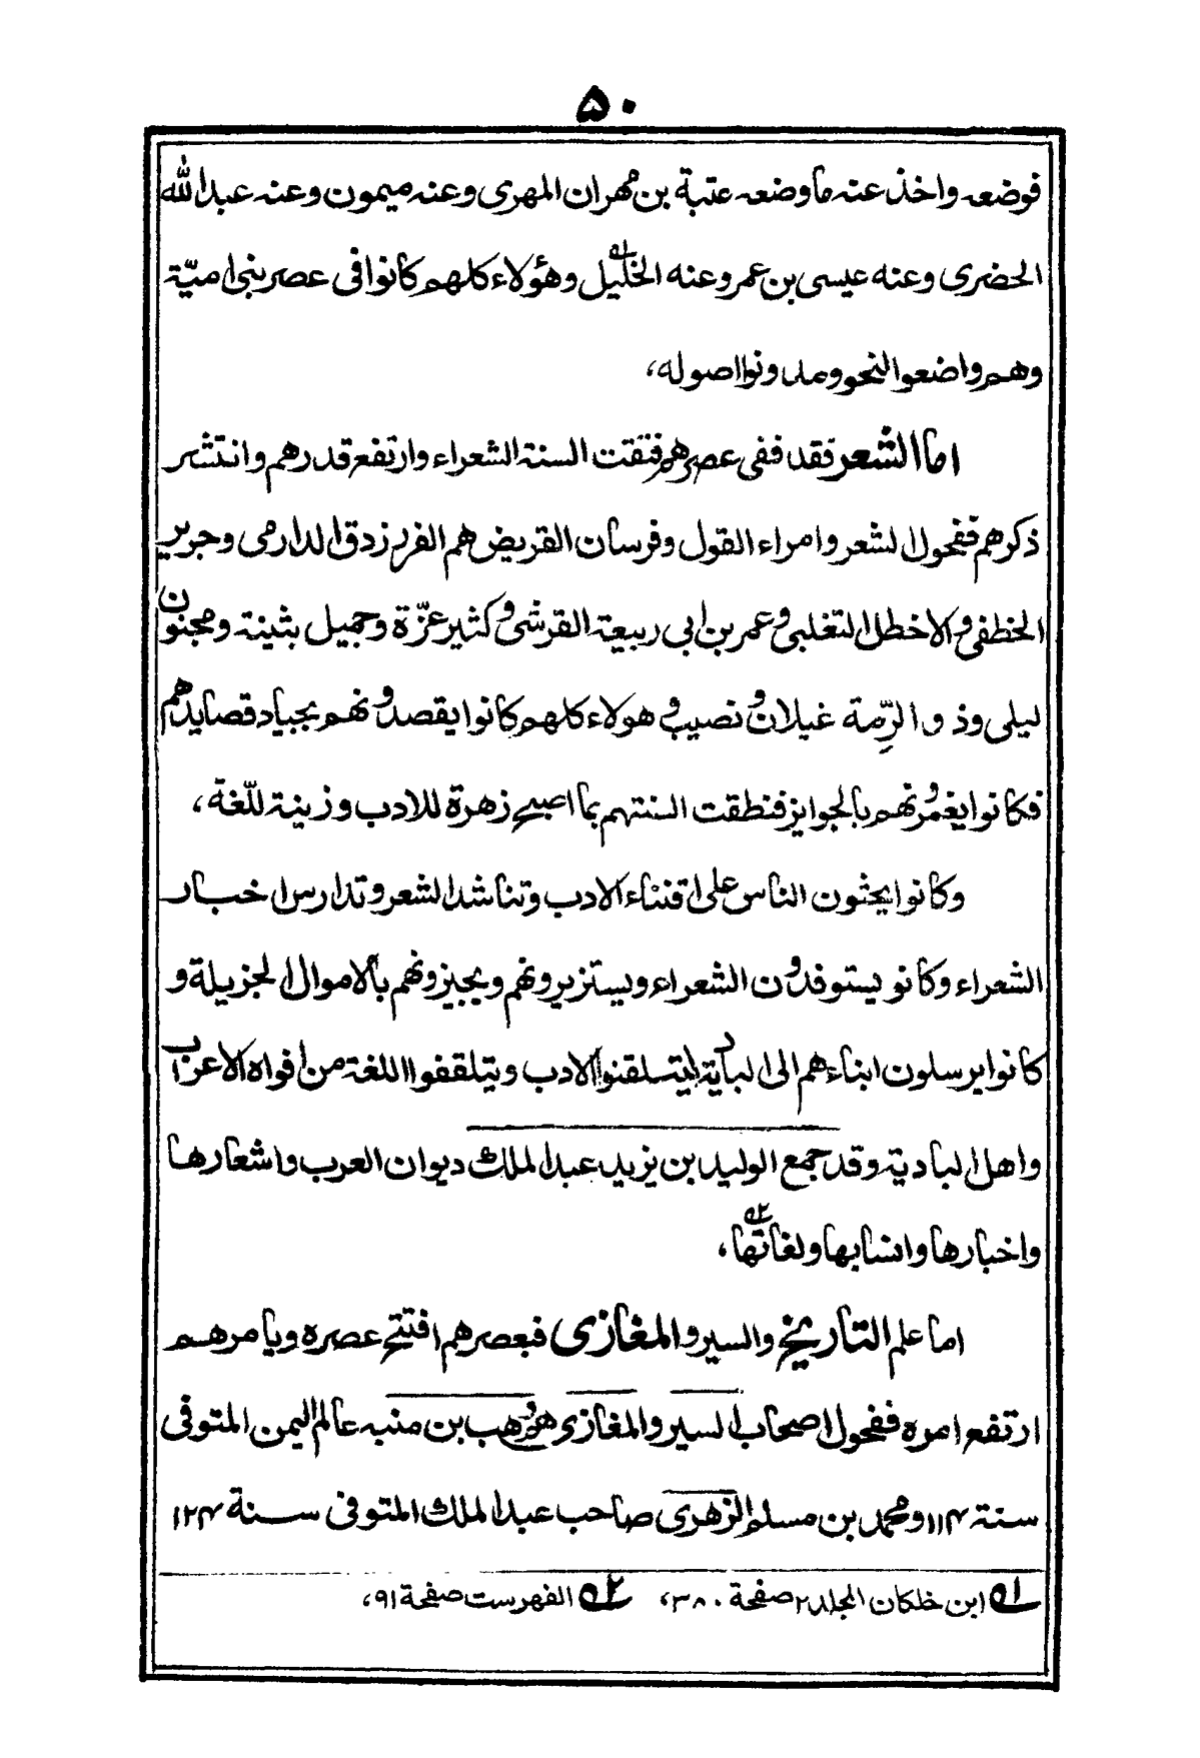 ۵۰
فوضعه واخذ عنه ماوضعه عتبة بن مهران المهرى وعنه ميمون وعنه عبدالله
الحضرى وعنه عيسى بن عمر وعنه الخليل؁۱ وهؤلاء كلهم كانوا فى عصر بنى اميّة
وهم واضعوا النحو ومدونوا اصوله،
اما الشعر فقد ففى عصرهم فتقت السنة الشعراء وارتفع قدرهم وانتشر
ذكرهم ففحول الشعر وامراء القول وفرسان القريض هم الفرزدق الدارمى وجرير
الخطفى والاخطل التغلبى وعمر بن ابى ربيعة القرشى وكثير عزّة وجميل بثينة ومجنون
ليلى وذو الرِّمة غيلان ونصيب وهولاء كلهم كانوا يقصدونهم بجياد قصايدهم
فكانوا يغمُرونهم بالجوايز فنطقت السنتهم بما اصبح زهرة للادب وزينة للّغة،
وكانوا يحثون الناس على اقتناء الادب وتناشد الشعر وتدارس اخبار
الشعراء وكانو يستوفدون الشعراء ويستزيرونهم ويجيزونهم بالاموال الجزيلة و
كانوا يرسلون ابناءهم الى البادية ليتسلقنوا الادب ويتلقفوا اللغة من افواه الاعراب
واهل البادية وقد جمع الوليد بن يزيد عبد الملك ديوان العرب واشعارها
واخبارها وانسابها ولغاتها؁۲،
اما علم التاريخ والسير والمغازى فبعصرهم افتتح عصره وبامرهم
ارتفع امره ففحول اصحاب السير والمغازى هو وهب بن منبه عالم اليمن المتوفى
سنة ۱۱۴ ومحمد بن مسلم الزهرى صاحب عبد الملك المتوفى سنة ۱۲۴
؁۱ ابن خلكان المجلد ۲ صفحة ۳۸۰، ؁۲ الفهرست صفحة ۹۱،